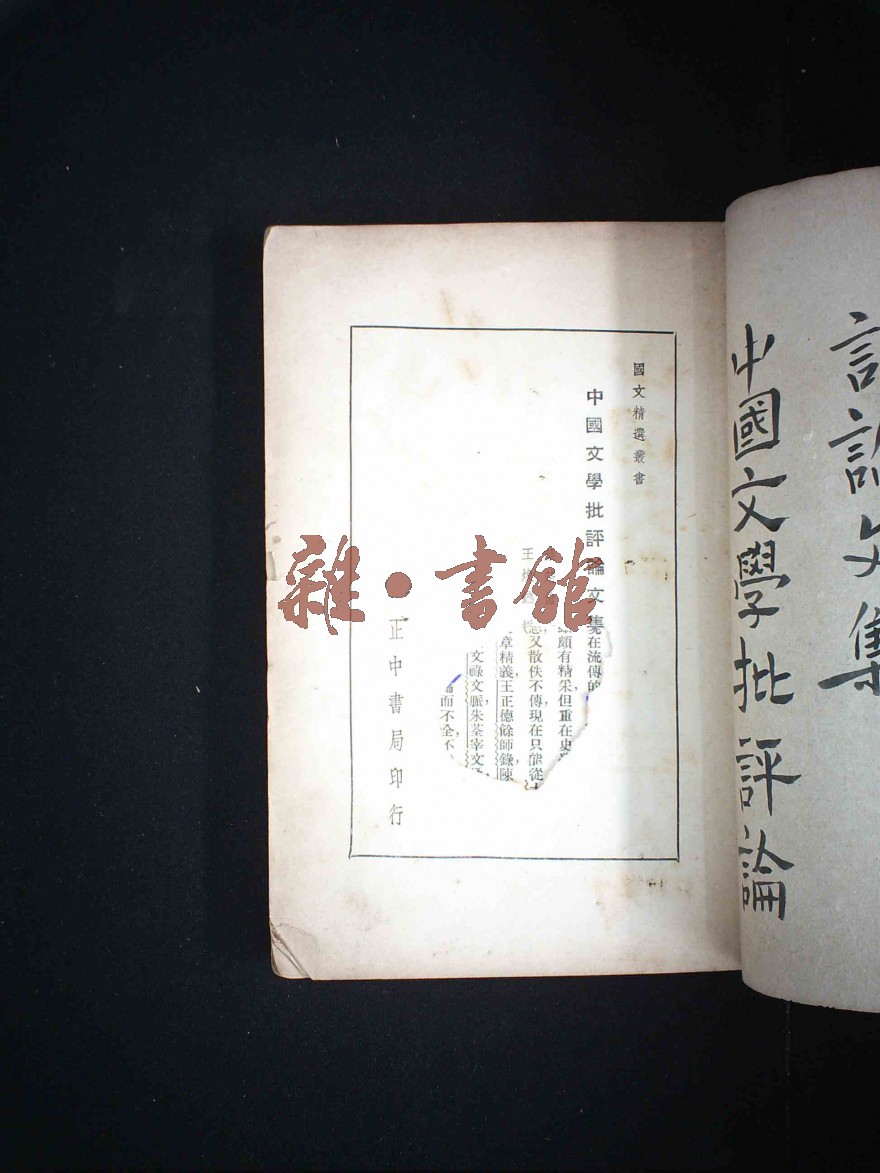 中國文學批評論
論文集
國文精選叢書
中國文學批評論文集
在流傳的
頗有精采但重在史
又散佚不傳現在只能從
章精義王正德餘師錄陳
文祿文脈朱荃宰文
而不全
王
正中書局印行
雜·書館